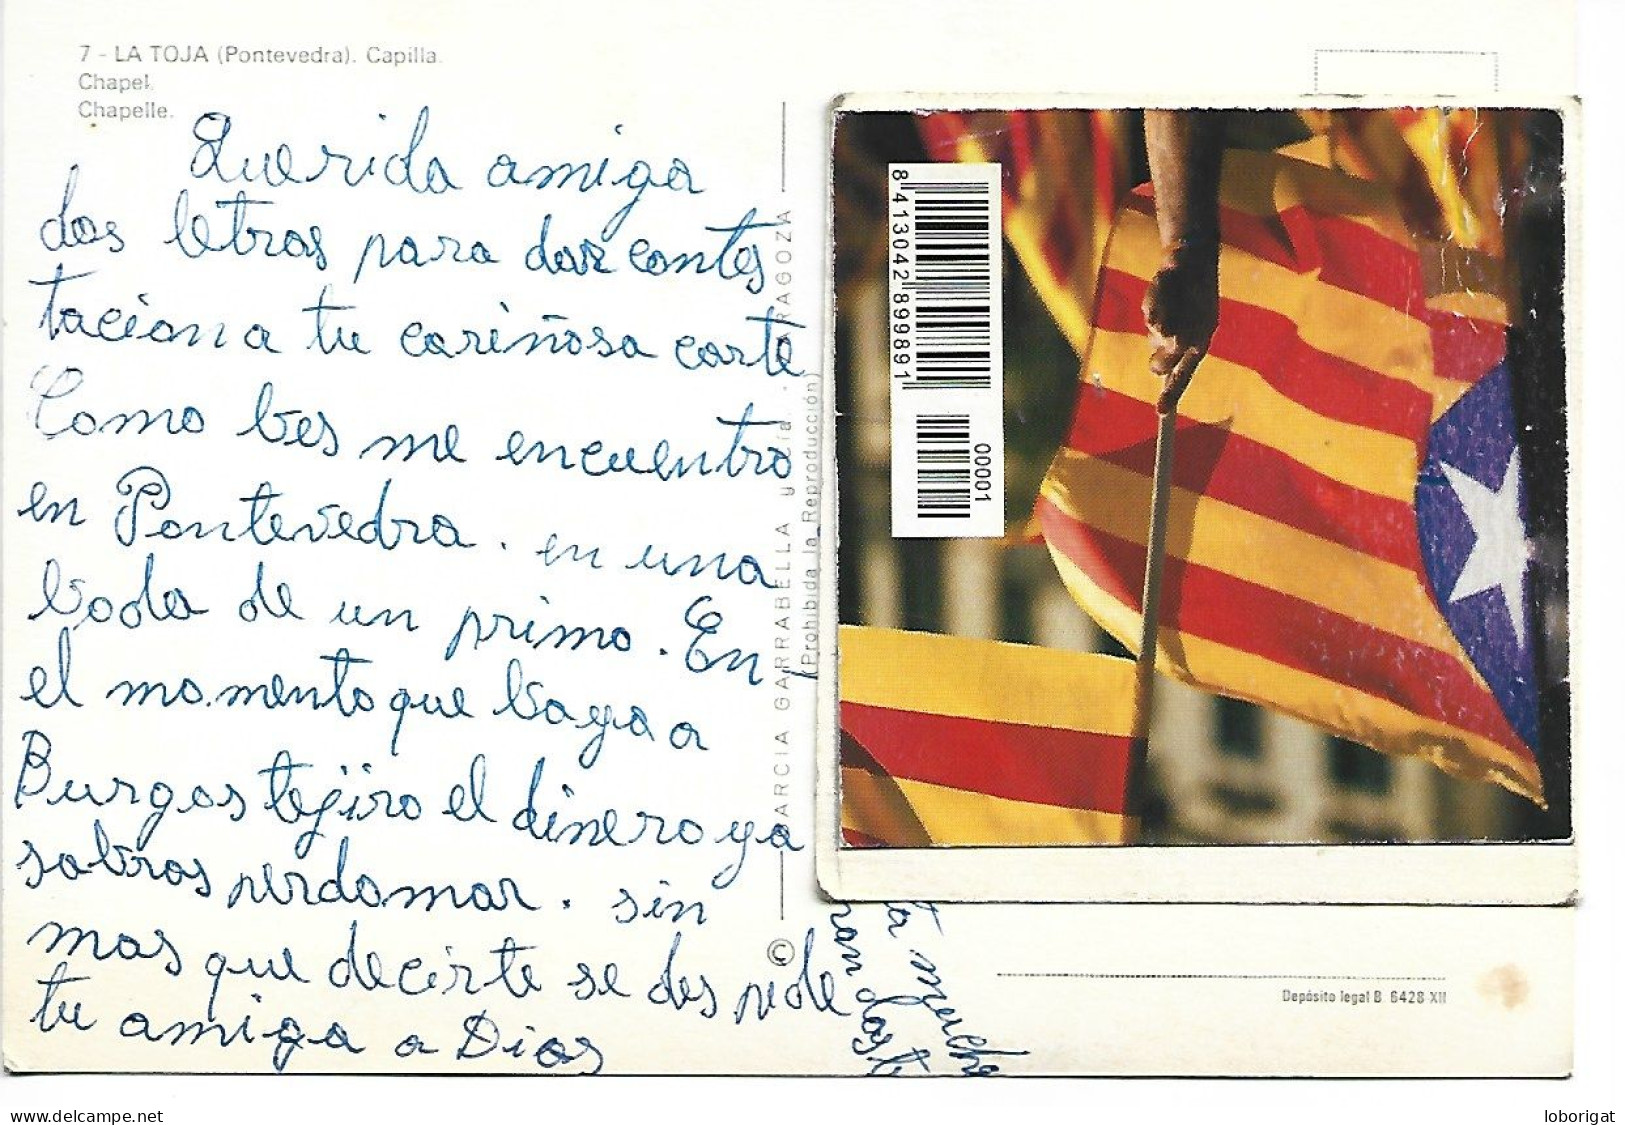 7 - LA TOJA (Pontevedra). Capilla.
Chapel.
Chapelle.
Querida amiga
dos letras para dar contes
tacion a tu cariñosa carte
Como bes me encuentro
en Pontevedra. en una
boda de un primo. En
el momento que baya a
Burgos tejiro el dinero ya
sabras perdomar. sin
mas que decirte se des pide
tu amiga a Dios
ARCIA GARRABELLA y
RAGOZA
(Prohibida la Reproducción)
©
8 413042 899891
00001
ta muche
ran dost
Depósito legal B. 6428 XII
www.delcampe.net
loborigat